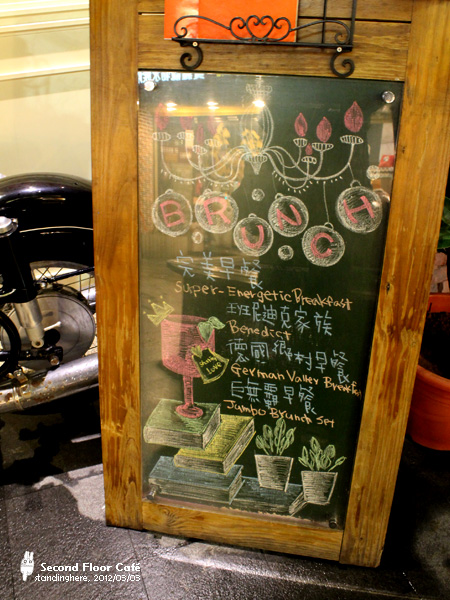 BRUNCH
完美早餐
Super-Energetic Breakfast
班尼迪克家族
Benedict
德國鄉村早餐
German Valley Breakfast
巨無霸早餐
Jumbo Brunch Set
Second Floor Café
standinghere. 2012/03/03